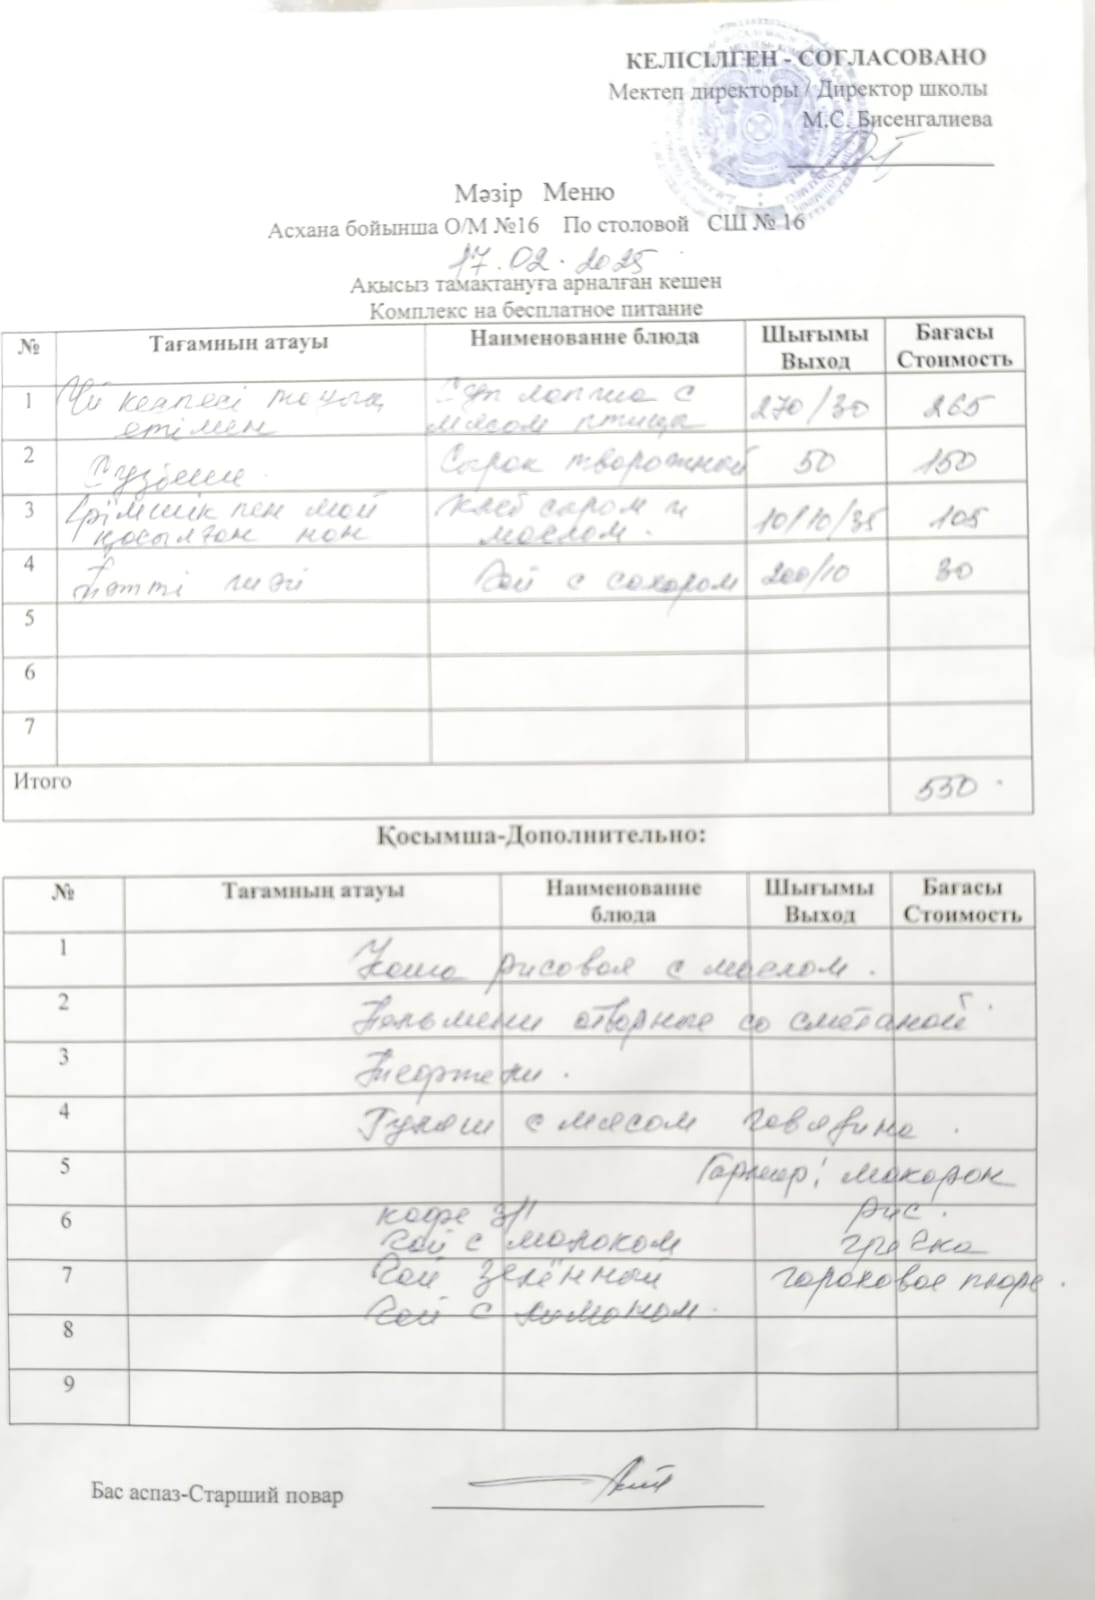 КЕЛІСІЛГЕН - СОГЛАСОВАНО
Мектеп директоры / Директор школы
М.С. Бисенгалиева
Мәзір Меню
Асхана бойынша О/М №16 По столовой СШ № 16
17.02.2025
Ақысыз тамақтануға арналған кешен
Комплекс на бесплатное питание
№ Тағамның атауы Наименование блюда Шығымы Выход Бағасы Стоимость
1 Үй кеспесі тауық етімен Суп лапша с мясом птица 270/30 265
2 Сүзбеше. Сырок творожной 50 150
3 Ірімшік пен май қосылған нан Хлеб сыром и маслом. 10/10/35 105
4 Тәтті шәй Чай с сахаром 200/10 30
5
6
7
Итого 550
Қосымша-Дополнительно:
№ Тағамның атауы Наименование блюда Шығымы Выход Бағасы Стоимость
1 Каша рисовая с маслом.
2 Пельмени отворные со сметаной.
3
4 Гуляш с мясом говядина.
5 Гарнир: макарон
6 кофе 3/1 рис.
чай с молоком гречка
7 Чай зелённый гороховое пюре.
Чай с лимоном.
8
9
Бас аспаз-Старший повар